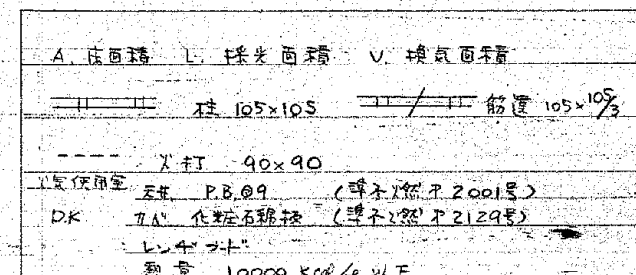 A. 床面積 L. 採光面積 V. 換気面積
柱 105×105 筋違 105×105/3
火打 90×90
火気使用室 天井 P.B.⑦9 (準不燃第2001号)
DK カベ 化粧石綿板 (準不燃第2129号)
レンヂフード
熱量 10000 Kcal/h 以下